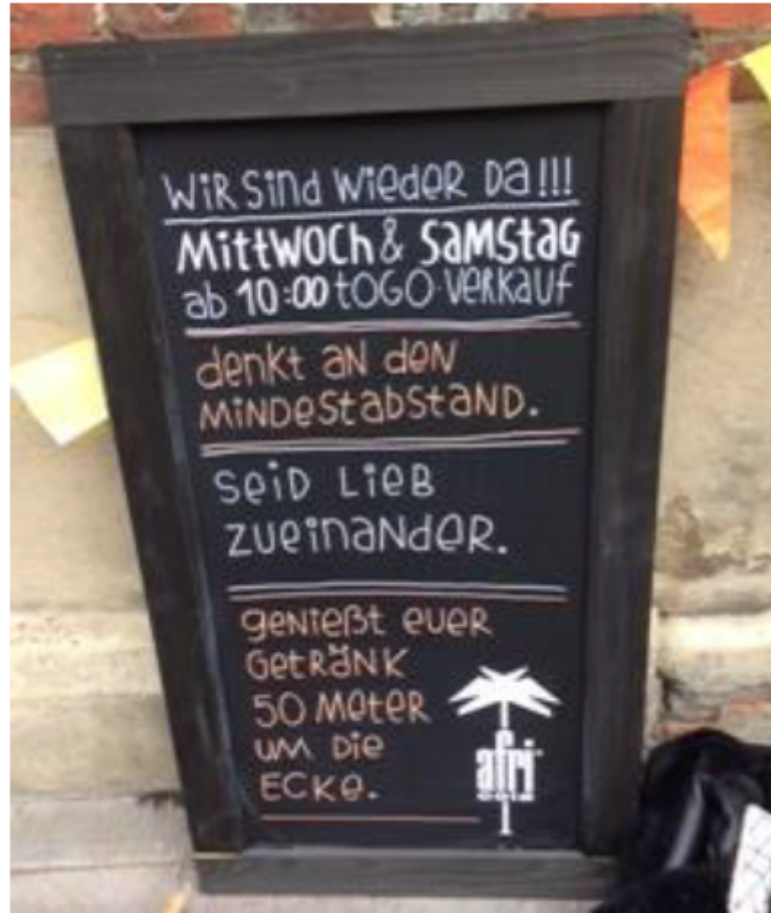 WiR Sind Wieder Da!!!
Mittwoch & Samstag
ab 10:00 toGo-Verkauf
denkt an den
Mindestabstand.
Seid Lieb
zueinander.
genießt euer
Getränk
50 Meter
um die
Ecke.
afri
cola